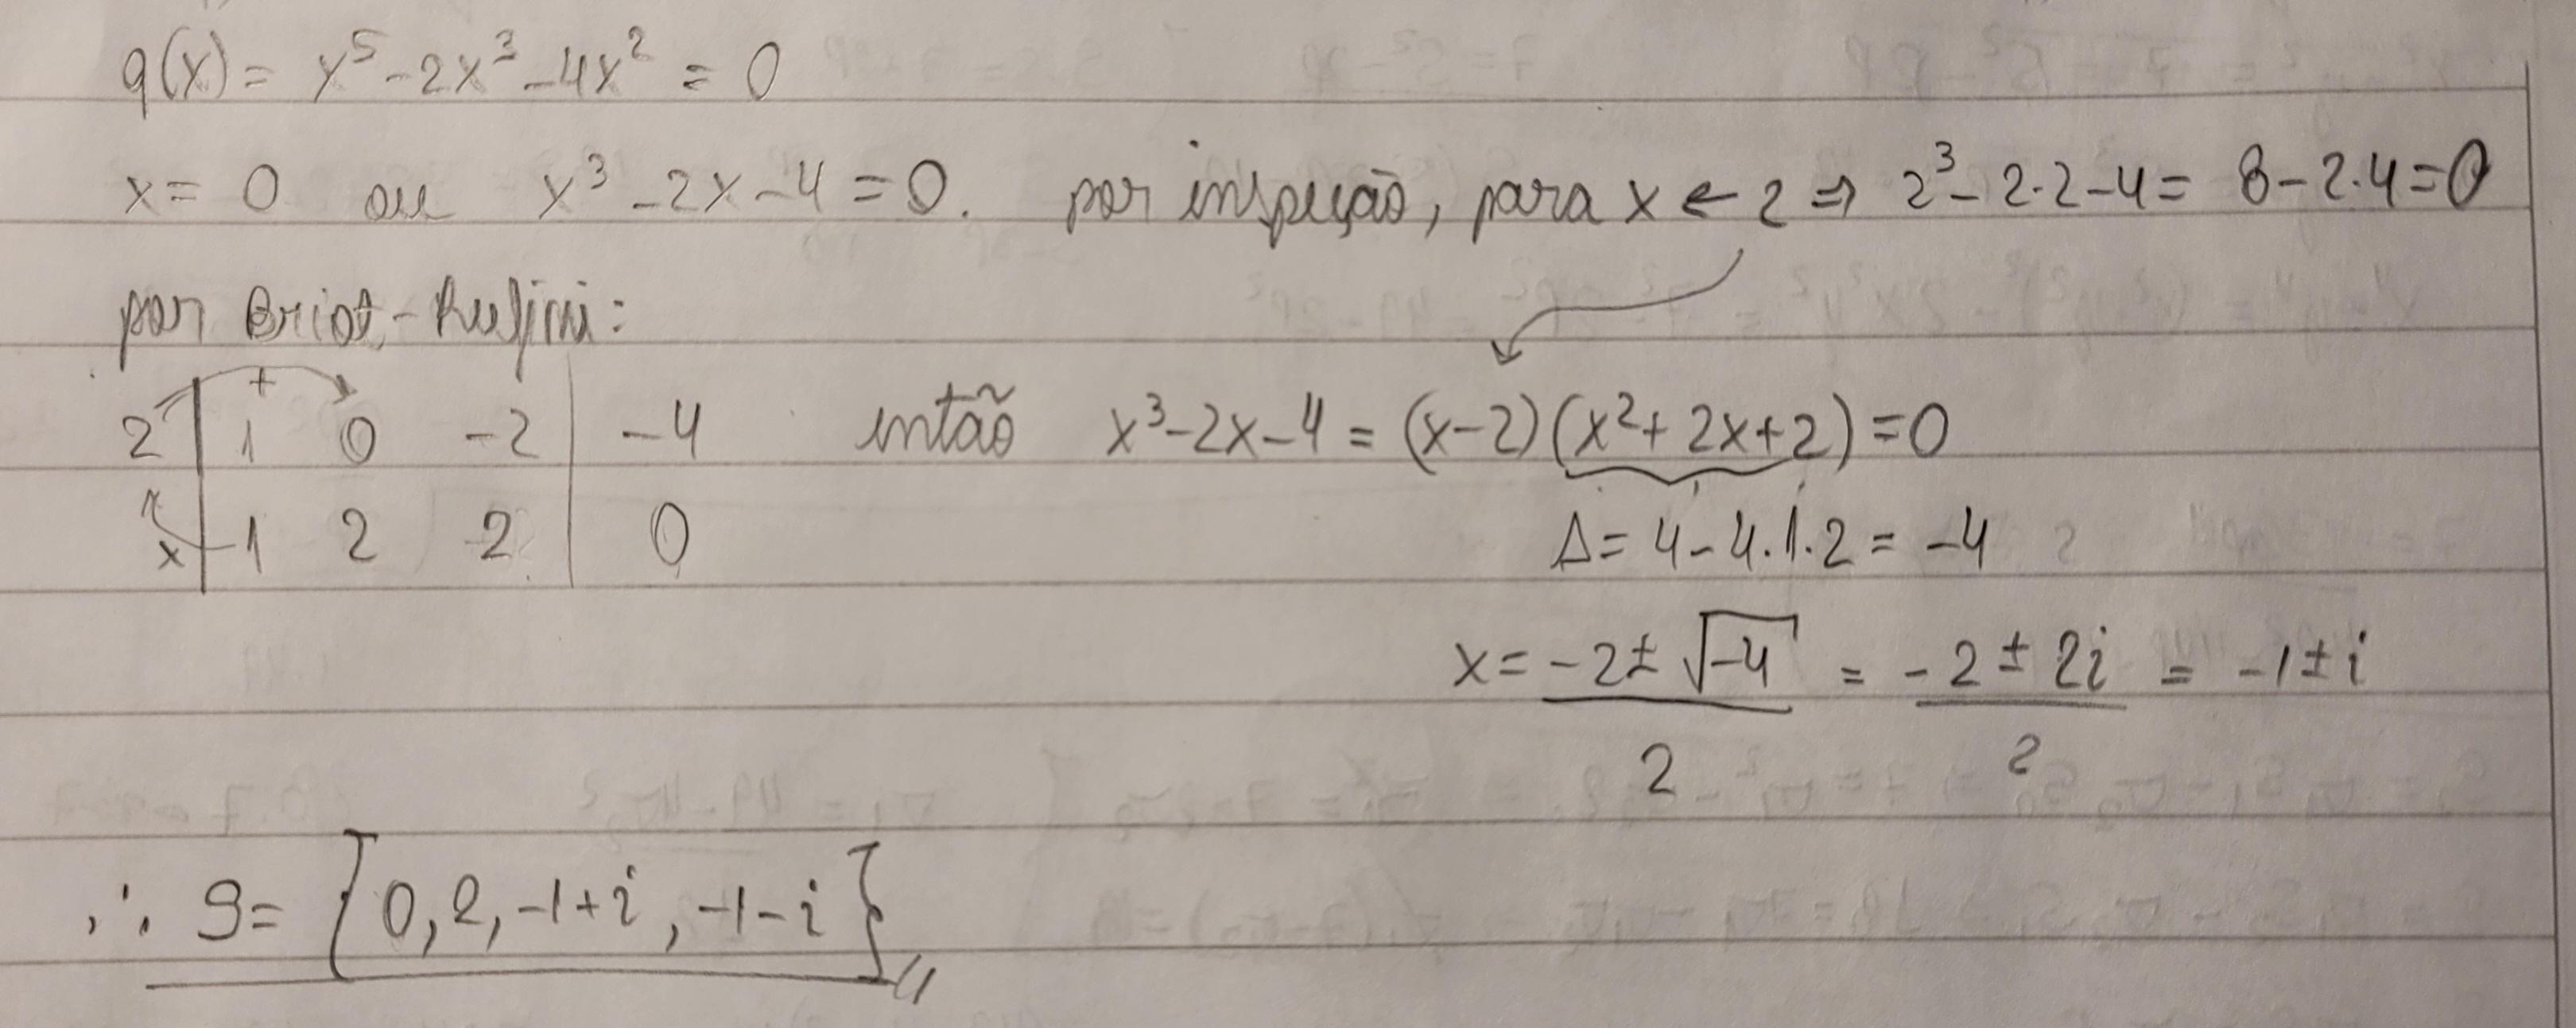 q(x) = x⁵ - 2x³ - 4x² = 0
x = 0 ou x³ - 2x - 4 = 0. por inspeção, para x ← 2 ⇒ 2³ - 2·2 - 4 = 8 - 2·4 = 0
por Briot-Ruffini:
+
2 | 1 0 -2 | -4 então x³ - 2x - 4 = (x-2)(x² + 2x + 2) = 0
x | 1 2 2 | 0 Δ = 4 - 4·1·2 = -4
x = (-2 ± √-4)/2 = (-2 ± 2i)/2 = -1 ± i
∴ S = {0, 2, -1+i, -1-i}